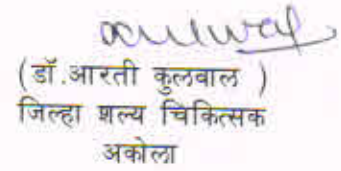 (डॉ.आरती कुलवाल )
जिल्हा शल्य चिकित्सक
अकोला